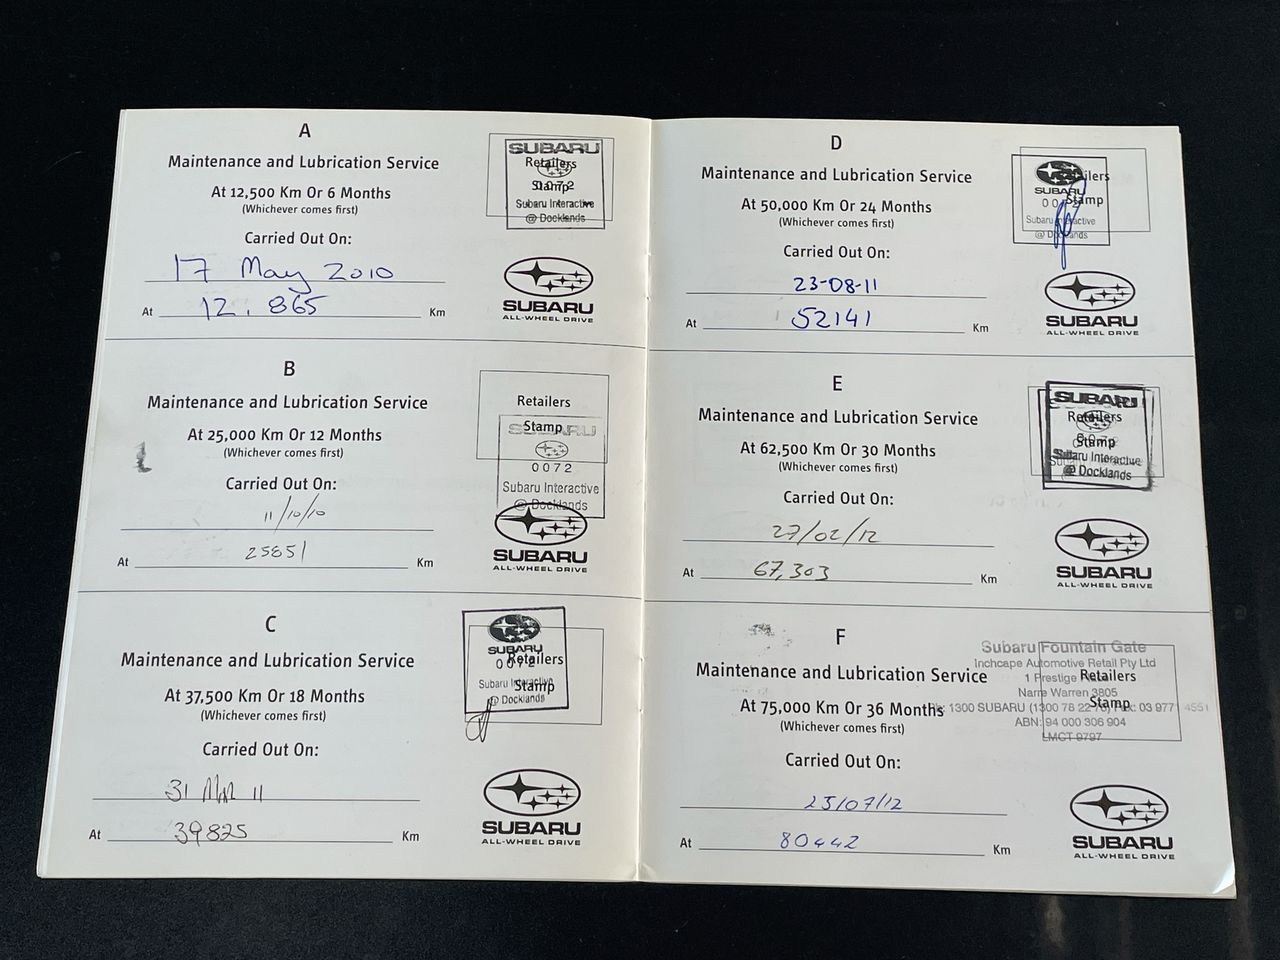 A
Maintenance and Lubrication Service
At 12,500 Km Or 6 Months
(Whichever comes first)
Carried Out On:
17 May 2010
At 12.865 Km
SUBARU
Retailers
0072
Stamp
Subaru Interactive
@ Docklands
SUBARU
ALL-WHEEL DRIVE
B
Maintenance and Lubrication Service
At 25,000 Km Or 12 Months
(Whichever comes first)
Carried Out On:
11/10/10
At 25851 Km
Retailers
Stamp
SUBARU
0072
Subaru Interactive
@ Docklands
SUBARU
ALL-WHEEL DRIVE
C
Maintenance and Lubrication Service
At 37,500 Km Or 18 Months
(Whichever comes first)
Carried Out On:
31 Mar 11
At 39825 Km
SUBARU
0072
Retailers
Subaru Interactive
Stamp
@ Docklands
SUBARU
ALL-WHEEL DRIVE
D
Maintenance and Lubrication Service
At 50,000 Km Or 24 Months
(Whichever comes first)
Carried Out On:
23-08-11
At 52141 Km
Retailers
SUBARU
0072
Stamp
Subaru Interactive
@ Docklands
SUBARU
ALL-WHEEL DRIVE
E
Maintenance and Lubrication Service
At 62,500 Km Or 30 Months
(Whichever comes first)
Carried Out On:
27/02/12
At 67,303 Km
SUBARU
Retailers
0072
Stamp
Subaru Interactive
@ Docklands
SUBARU
ALL-WHEEL DRIVE
F
Maintenance and Lubrication Service
At 75,000 Km Or 36 Months
(Whichever comes first)
Carried Out On:
23/07/12
At 80442 Km
Subaru Fountain Gate
Inchcape Automotive Retail Pty Ltd
Retailers
1 Prestige
Narre Warren 3805
Stamp
Ph: 1300 SUBARU (1300 78 22 78) Fax: 03 977 4551
ABN: 94 000 306 904
LMCT 9797
SUBARU
ALL-WHEEL DRIVE